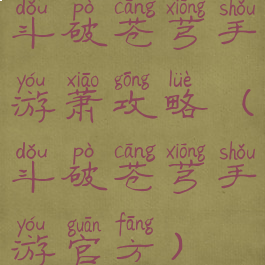 dǒu pò cāng xiōng shǒu
斗破苍芎手
yóu xiāo gōng lüè
游萧攻略（
dǒu pò cāng xiōng shǒu
斗破苍芎手
yóu guān fāng
游官方）